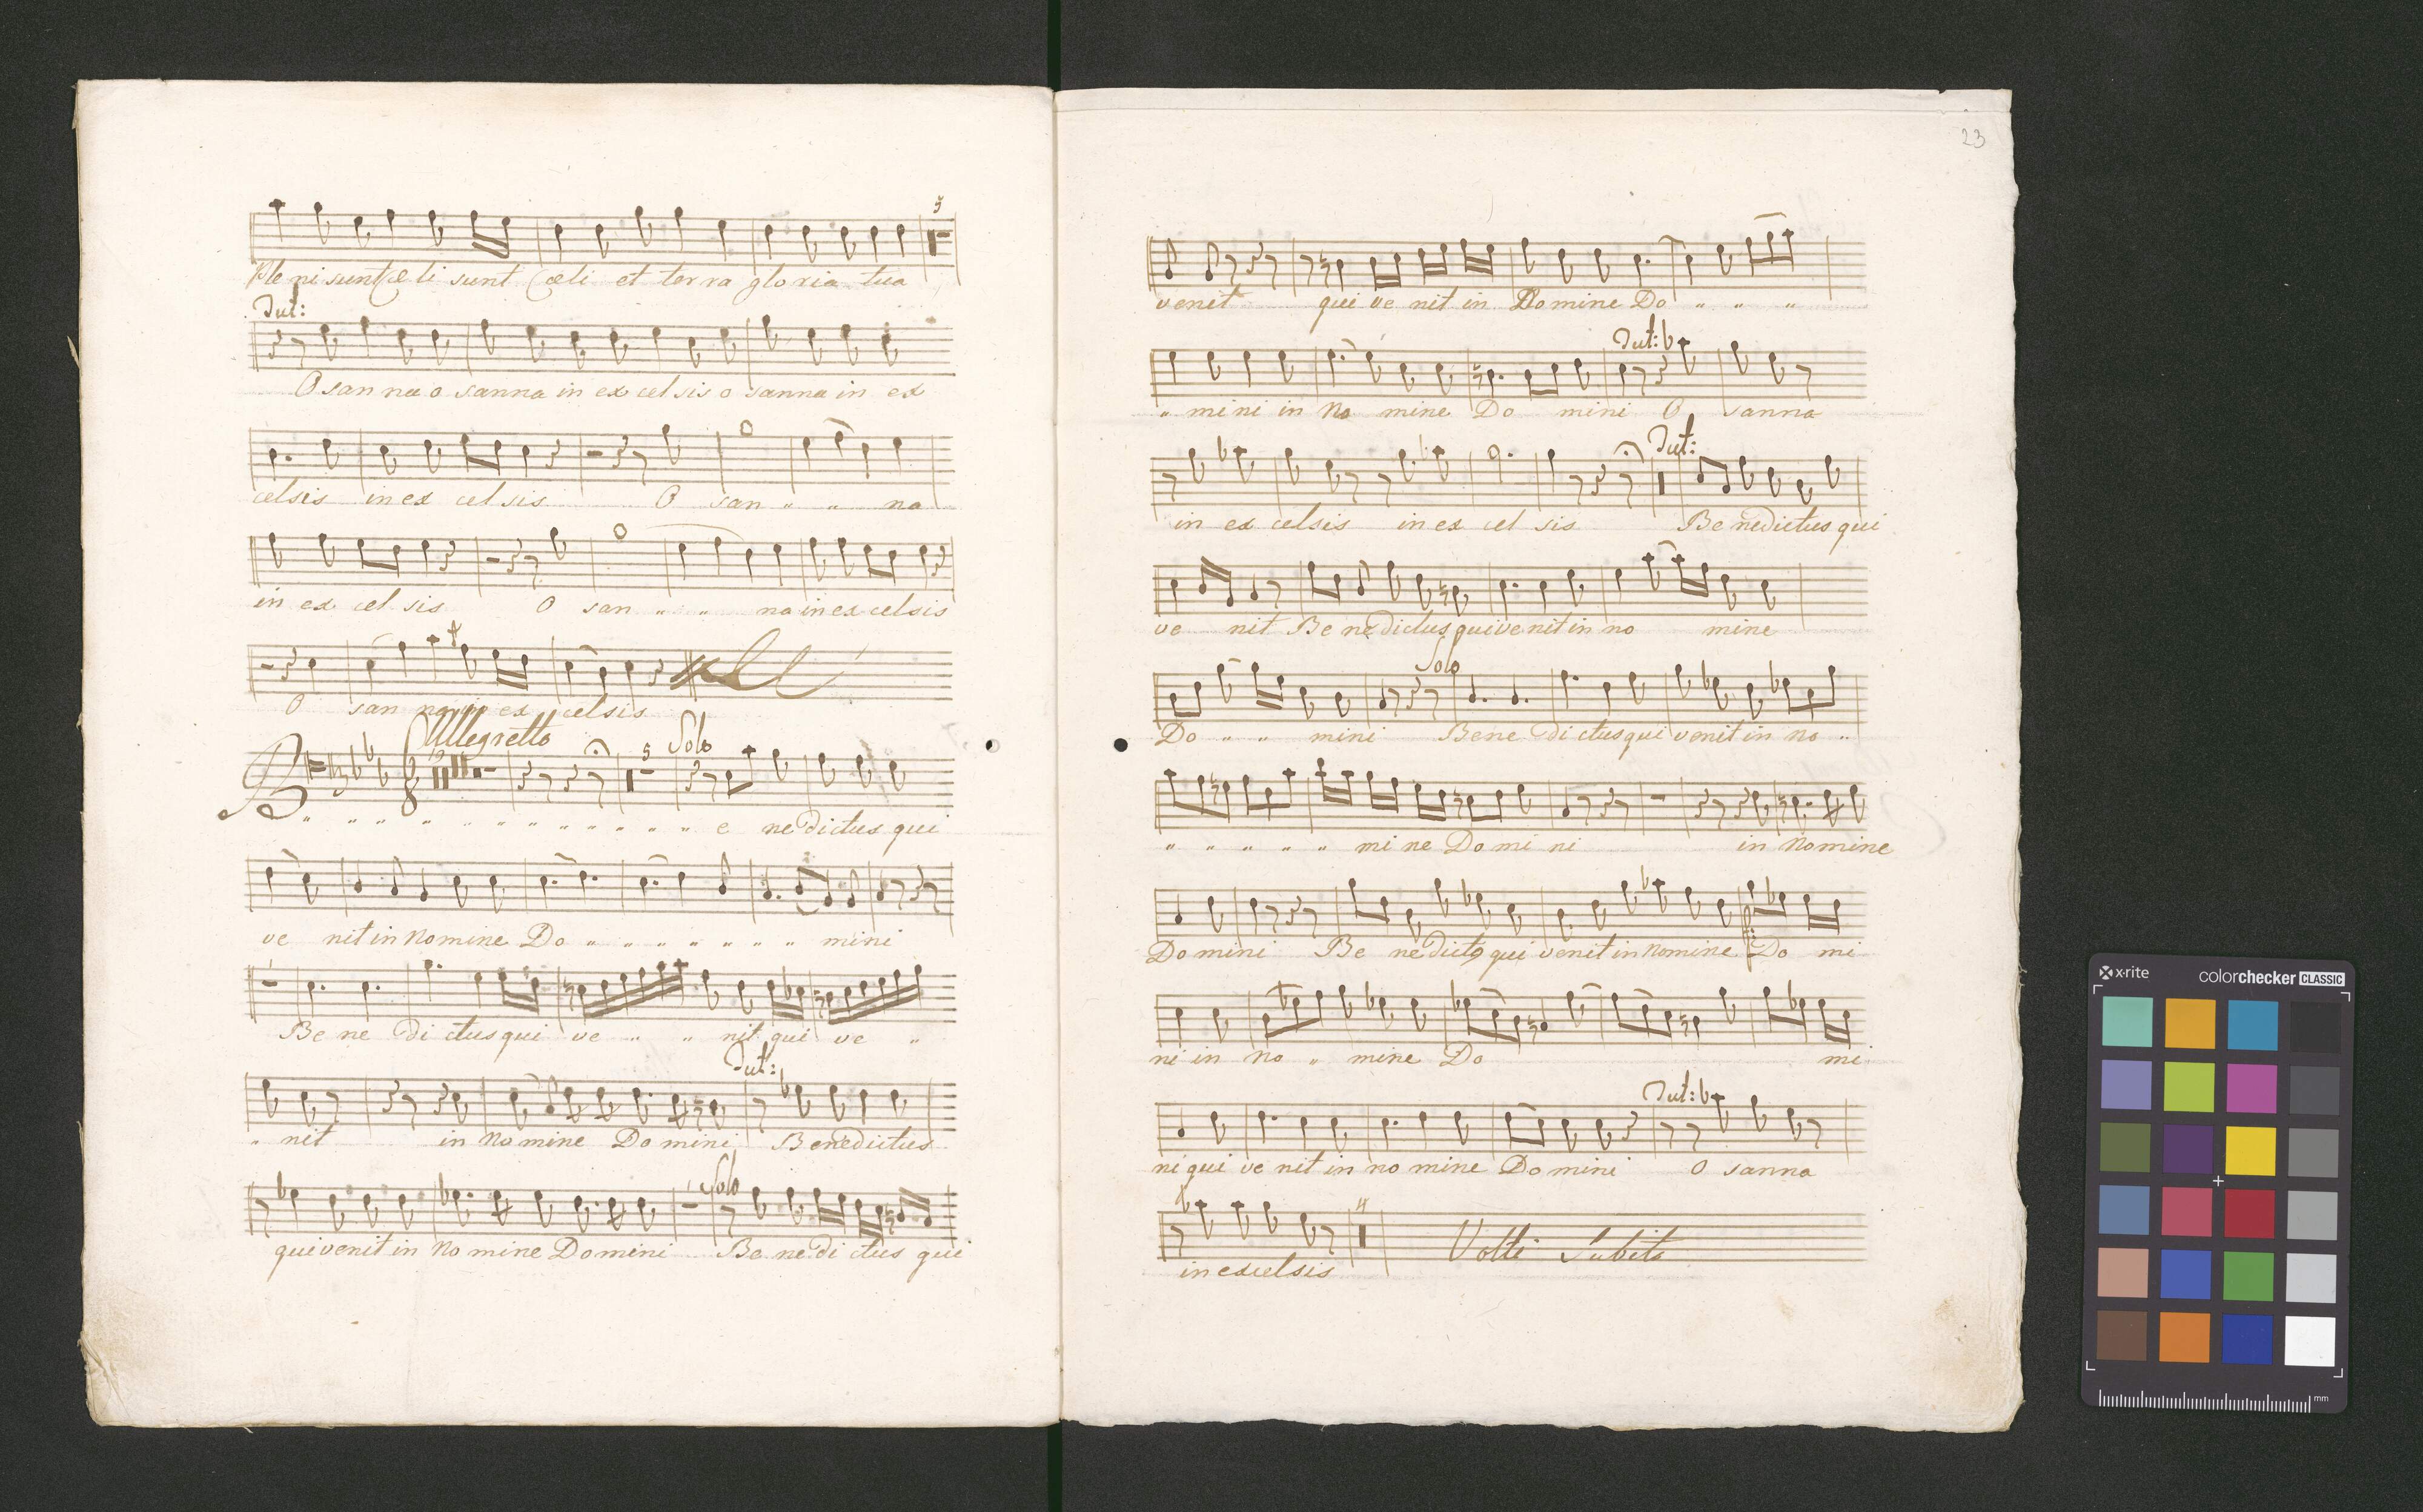 5
Ple ni sunt Cæ li sunt Cæli et ter ra glo ria tua
Tut:
O san na o sanna in ex cel sis o sanna in ex
celsis in ex cel sis O san " " na
in ex cel sis O san " " na in ex celsis
O san na in ex celsis
Allegretto
5 Solo
B " " " " " " " " " " " " e ne dictus qui
ve nit in Nomine Do " " " " " " " mini
Be ne di ctus qui ve " " nit qui ve "
Tut:
" nit in No mine Do mini Benedictus
Solo
qui venit in No mine Domini Be ne di ctus qui
23
venit qui ve nit in No mine Do " " "
Tut:
" mi ni in No mine Do mini O sanna
Tut:
in ex celsis in ex cel sis Be nedictus qui
ve nit Be ne dictus qui ve nit in no mine
Solo
Do " " mini Bene di ctus qui venit in no "
" " " " " mi ne Do mi ni in Nomine
Do mini Be ne dictg qui venit in Nomine Do mi
ni in no " mine Do mi
Tut:
ni qui ve nit in no mine Do mini O sanna
4
Volti Subito
in excelsis
x-rite colorchecker CLASSIC
mm